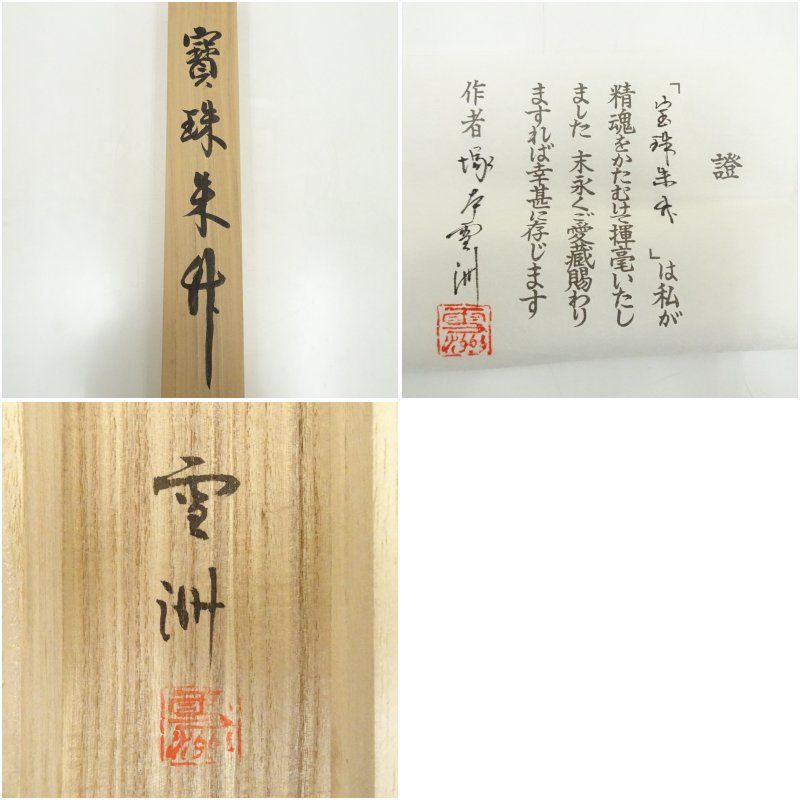 寶珠朱竹
證
「宝珠朱竹」は私が
精魂をかたむけて揮毫いたし
ました 末永くご愛蔵賜わり
ますれば幸甚に存じます
作者 塚本雪洲
雪洲